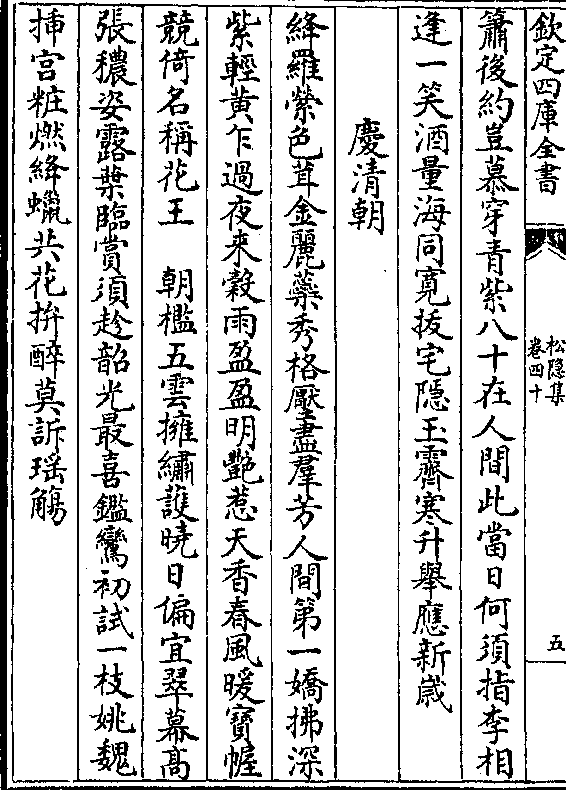 欽定四庫全書
松隠集
卷四十
五
簫後約豈慕穿青紫八十在人間此當日何須指李相
逢一笑酒量海同寛拔宅隠玉霽寒升舉應新歳
慶清朝
絳羅縈色茸金麗蘂秀格壓盡羣芳人間第一嬌拂深
紫輕黄乍過夜來穀雨盈盈明艷惹天香春風暖寶幄
競倚名稱花王　朝檻五雲擁繡護曉日偏宜翠幕髙
張穠姿露葉臨賞須趁韶光最喜鑑鸞初試一枝姚魏
挿宫粧燃絳蠟共花拚醉莫訴瑶觴